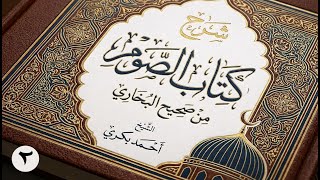 شرح
كتاب الصوم
من صحيح البخاري
الشيخ
أحمد بكري
٢